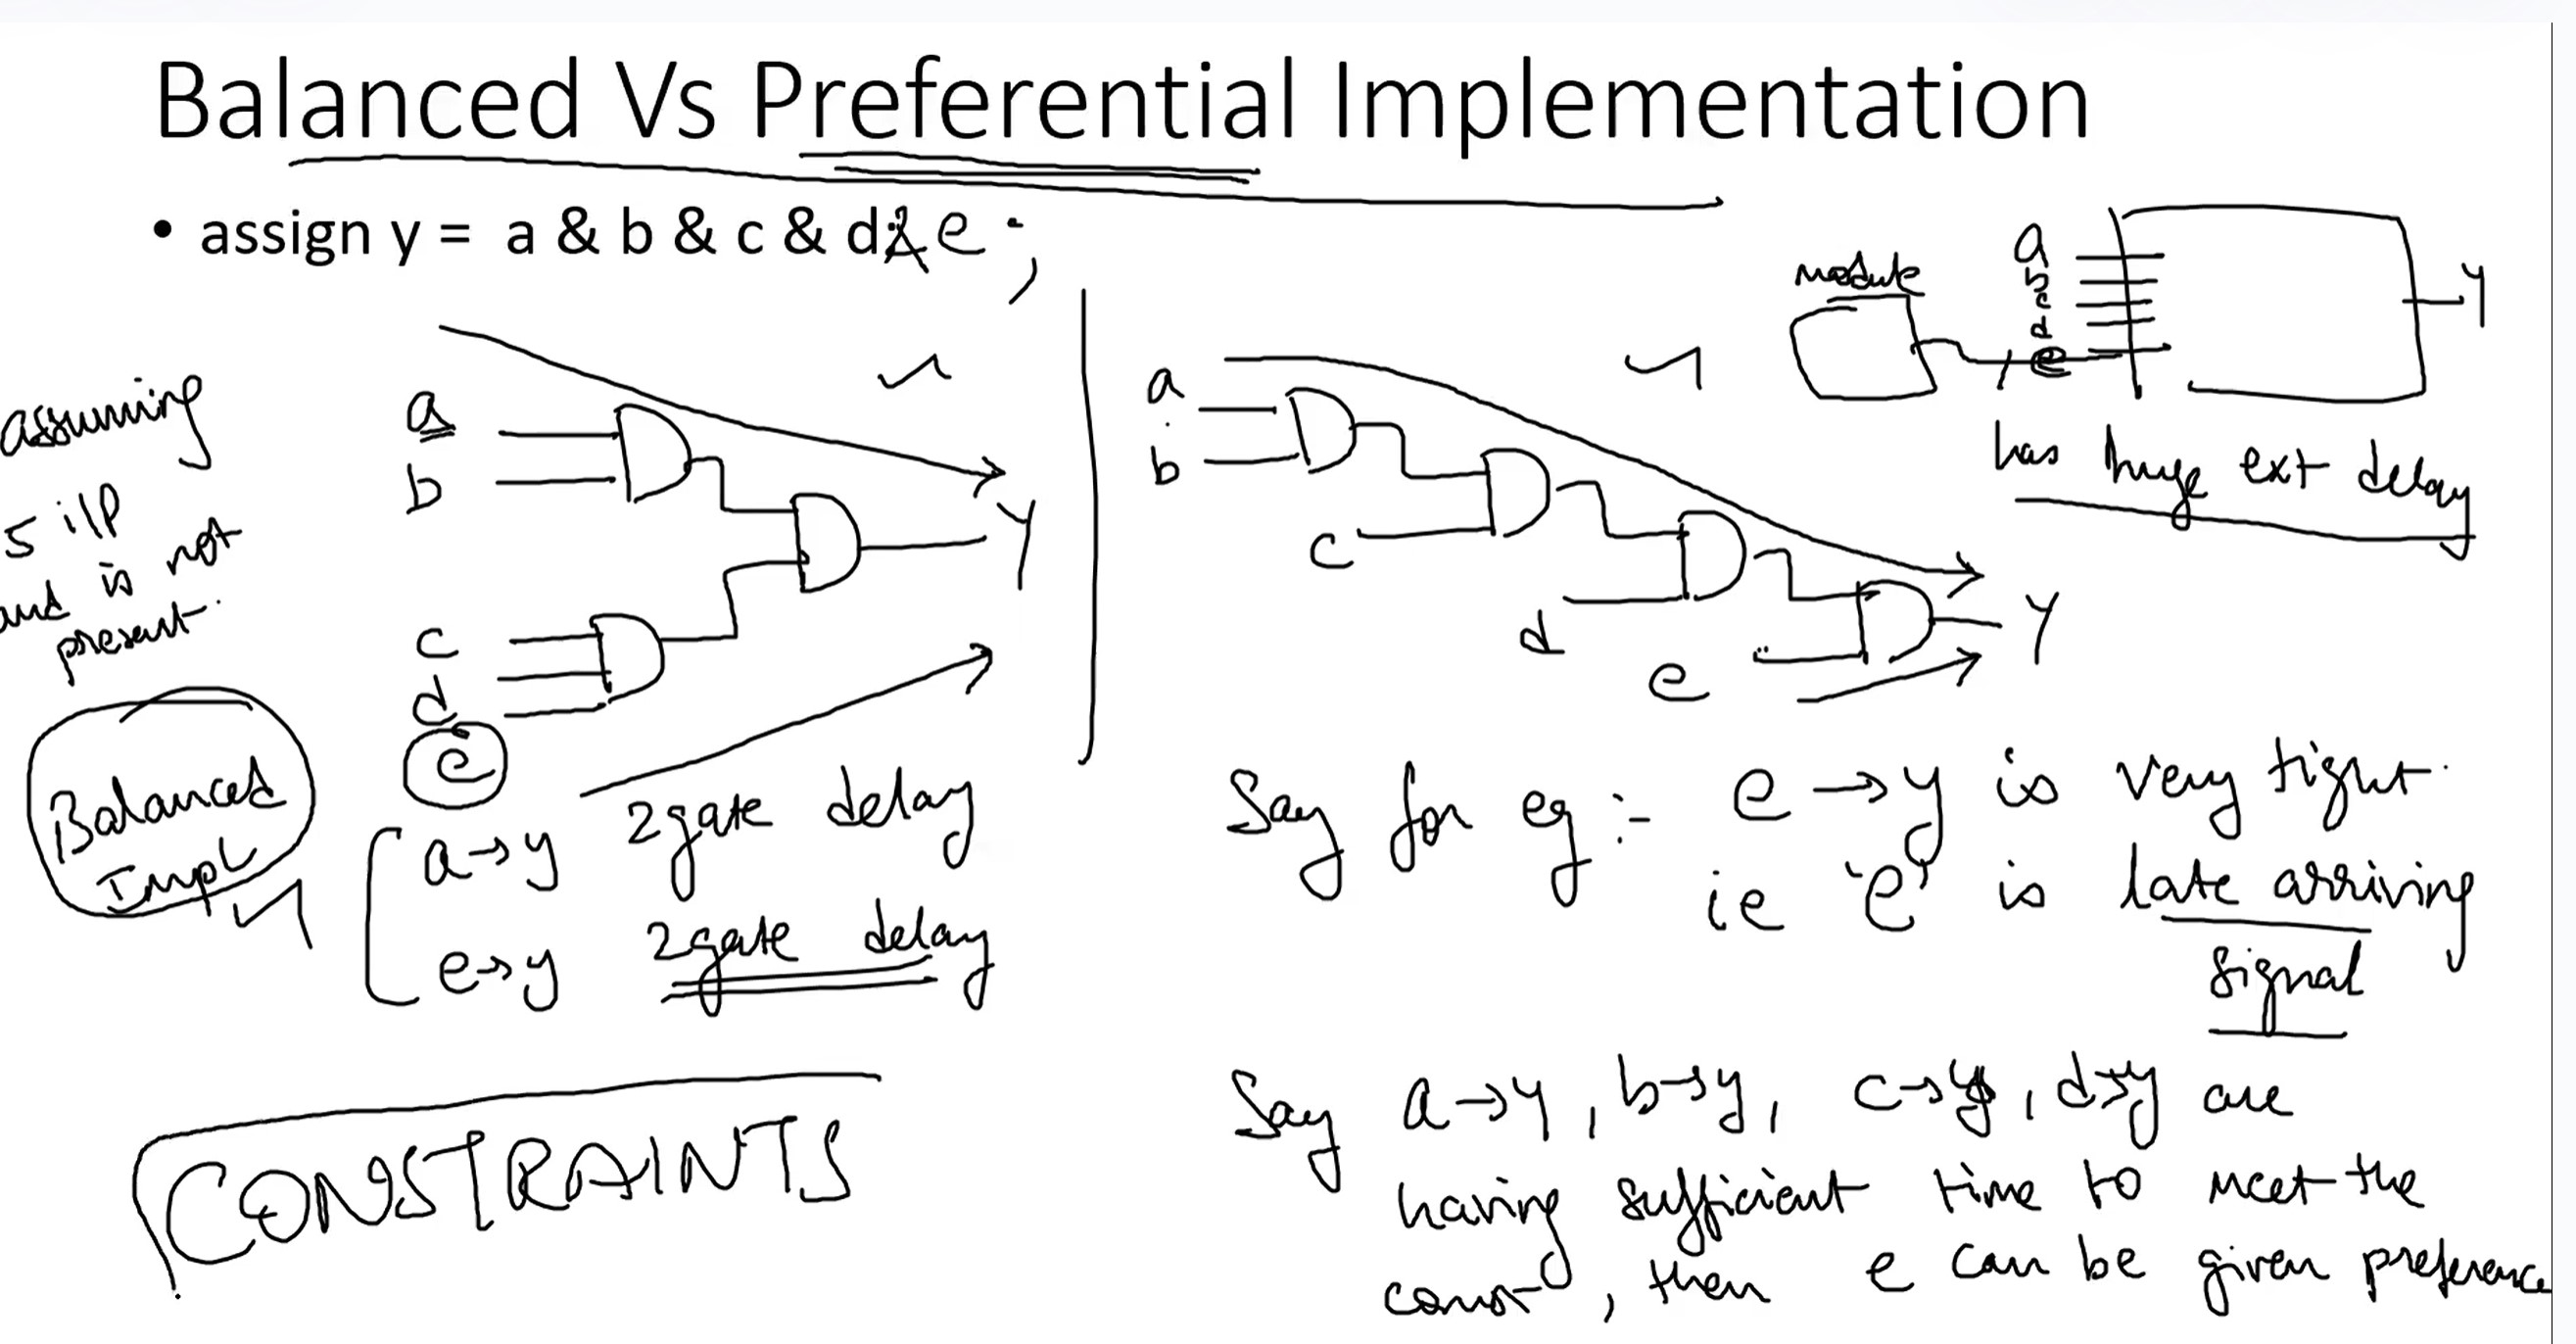 Balanced Vs Preferential Implementation
• assign y = a & b & c & d & e ;
assuming
5 i/p
and is not
present.
a
b
c
d
e
Y
Balanced
Impl
a → y 2 gate delay
e → y 2 gate delay
CONSTRAINTS
a
b
c
d
e
Y
module
a
b
c
d
e
Y
has huge ext delay
Say for eg :- e → y is very tight.
ie 'e' is late arriving
signal
Say a → y , b → y , c → y , d → y are
having sufficient time to meet the
const , then e can be given preference